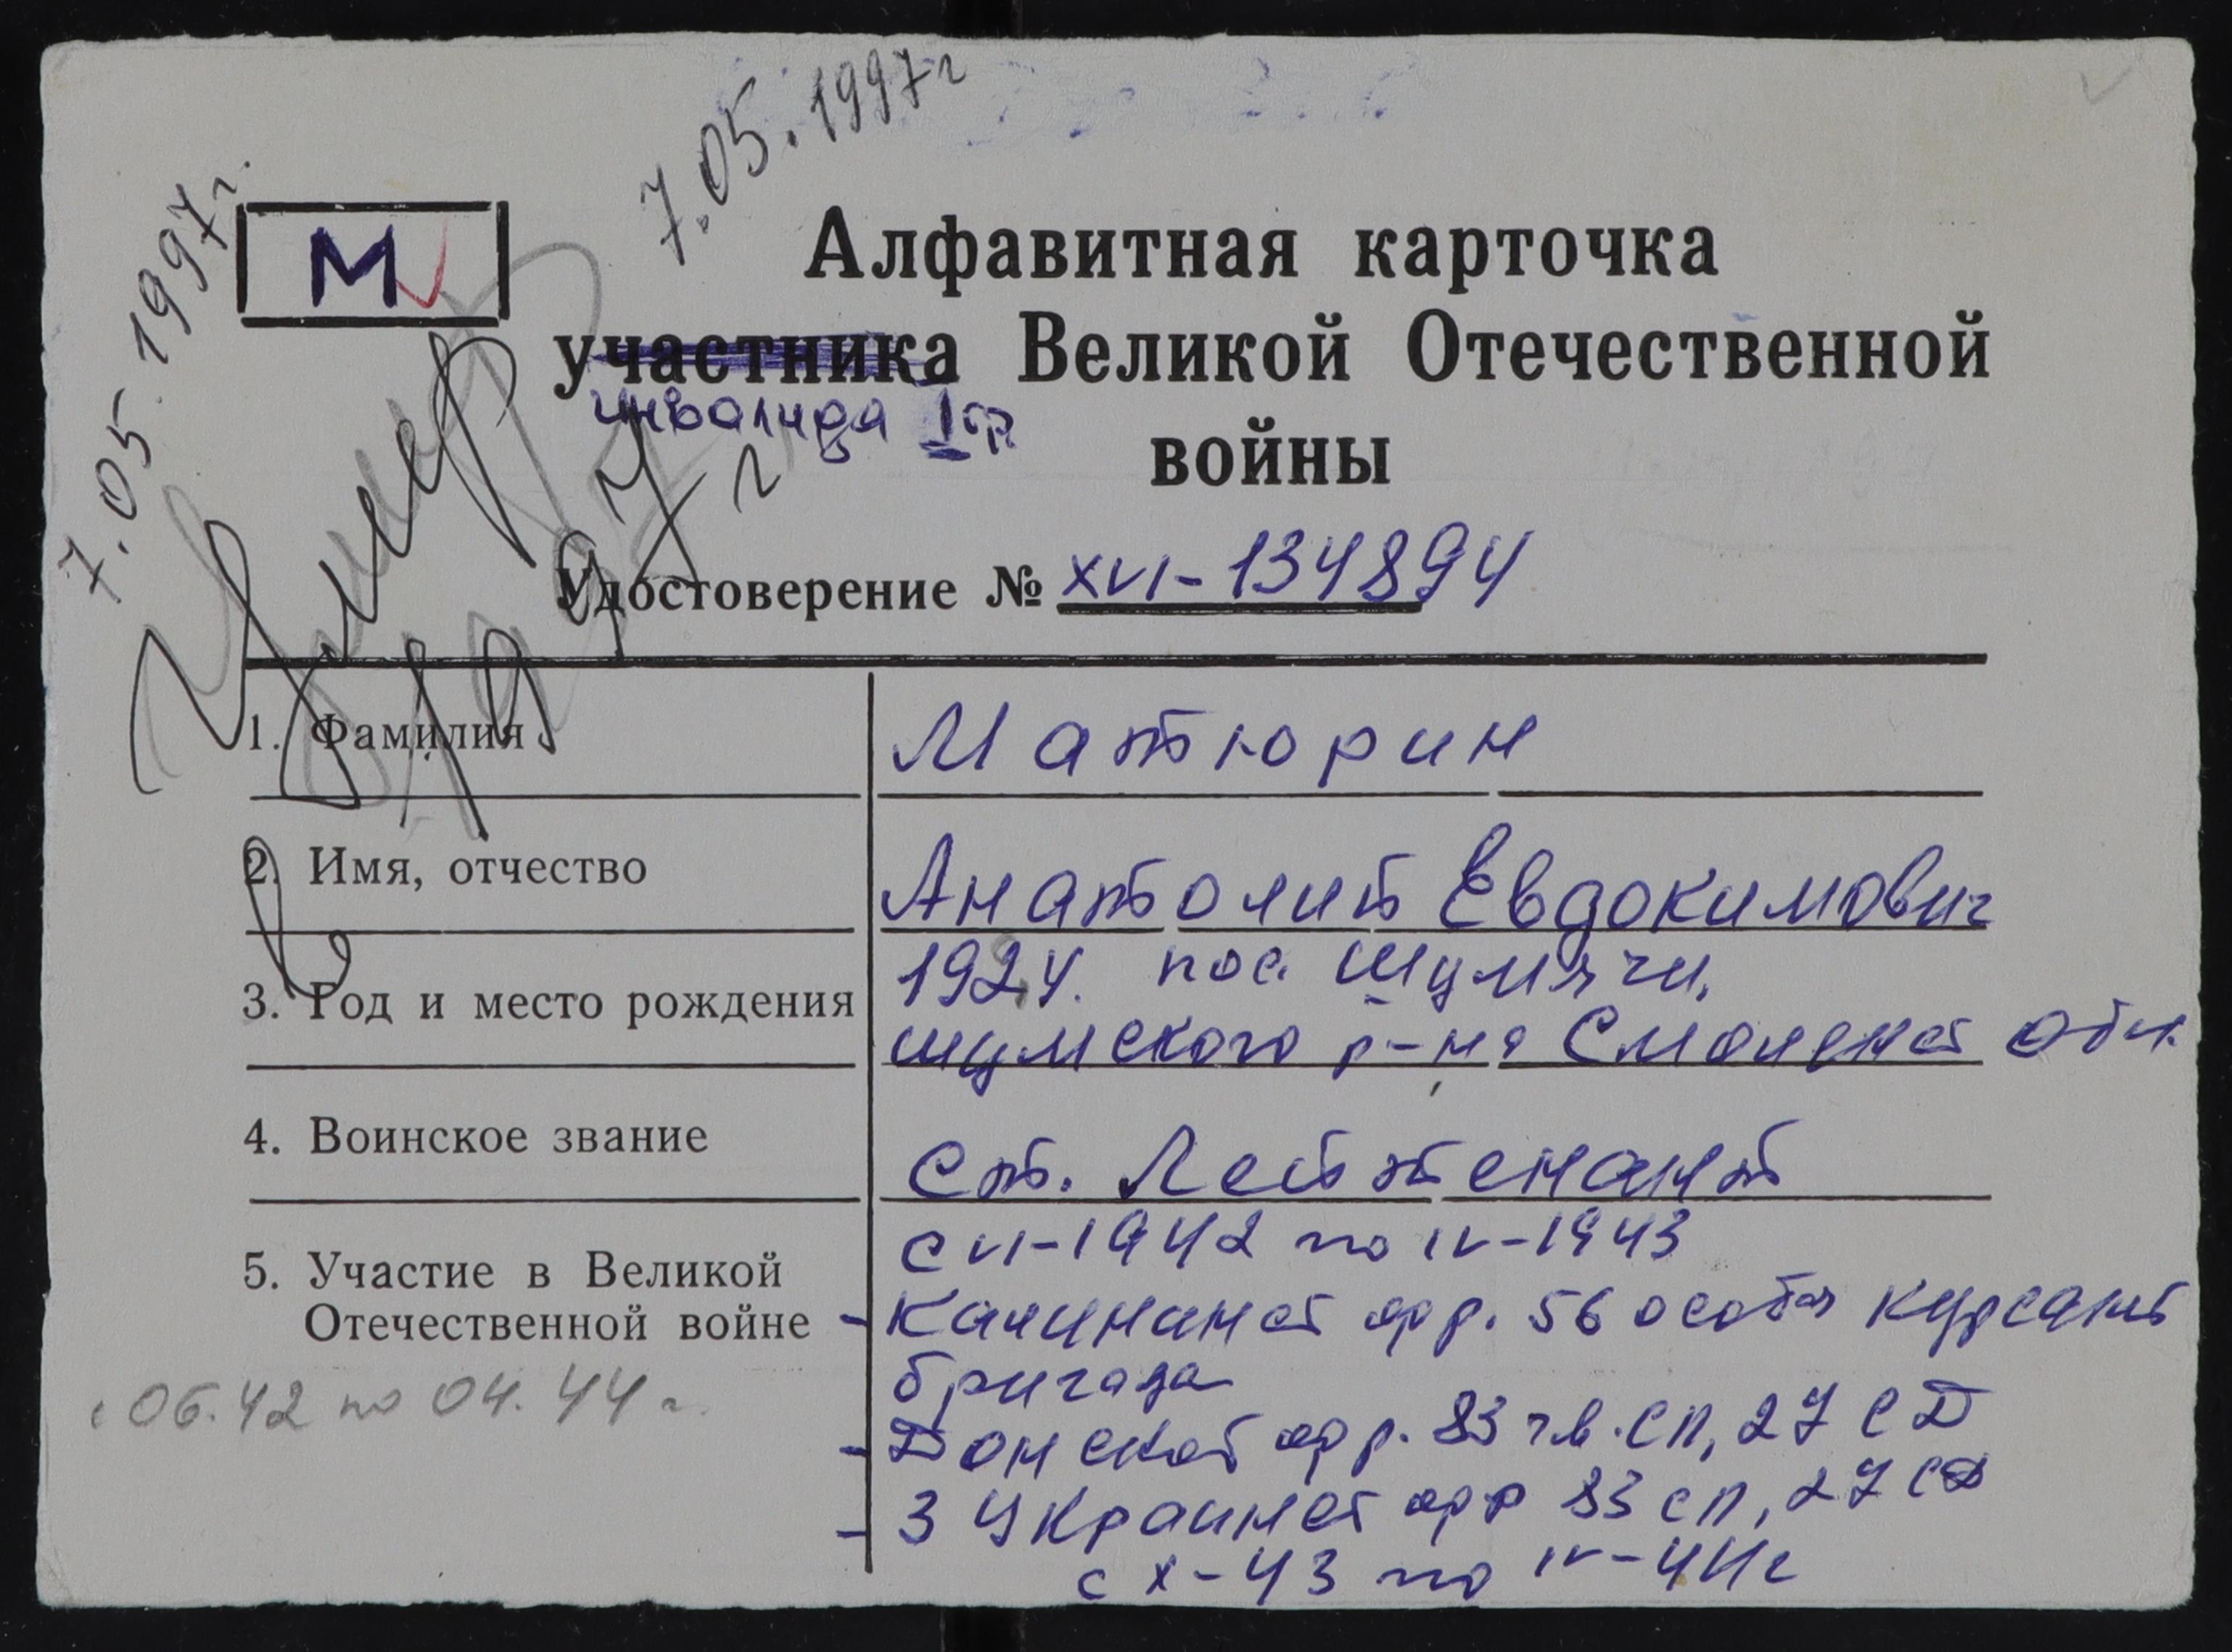 7.05.1997г
7.05.1997г.
М
Алфавитная карточка
участника Великой Отечественной
инвалида I гр
войны
Умер
1997 г
Удостоверение № XVI-134894
1. Фамилия
Матюрин
2. Имя, отчество
Анатолий Евдокимович
3. Год и место рождения
1924. пос. Шумячи,
шумского р-на Смоленск обл.
4. Воинское звание
Ст. Лейтенант
5. Участие в Великой
Отечественной войне
с 06.42 по 04.44 г.
с VI-1942 по IV-1943
- Калининск фр. 56 особая курсант
бригада
- Донской фр. 83 гв. СП, 27 СД
- 3 Украинск фр 83 сп, 27 СД
с X-43 по IV-44г